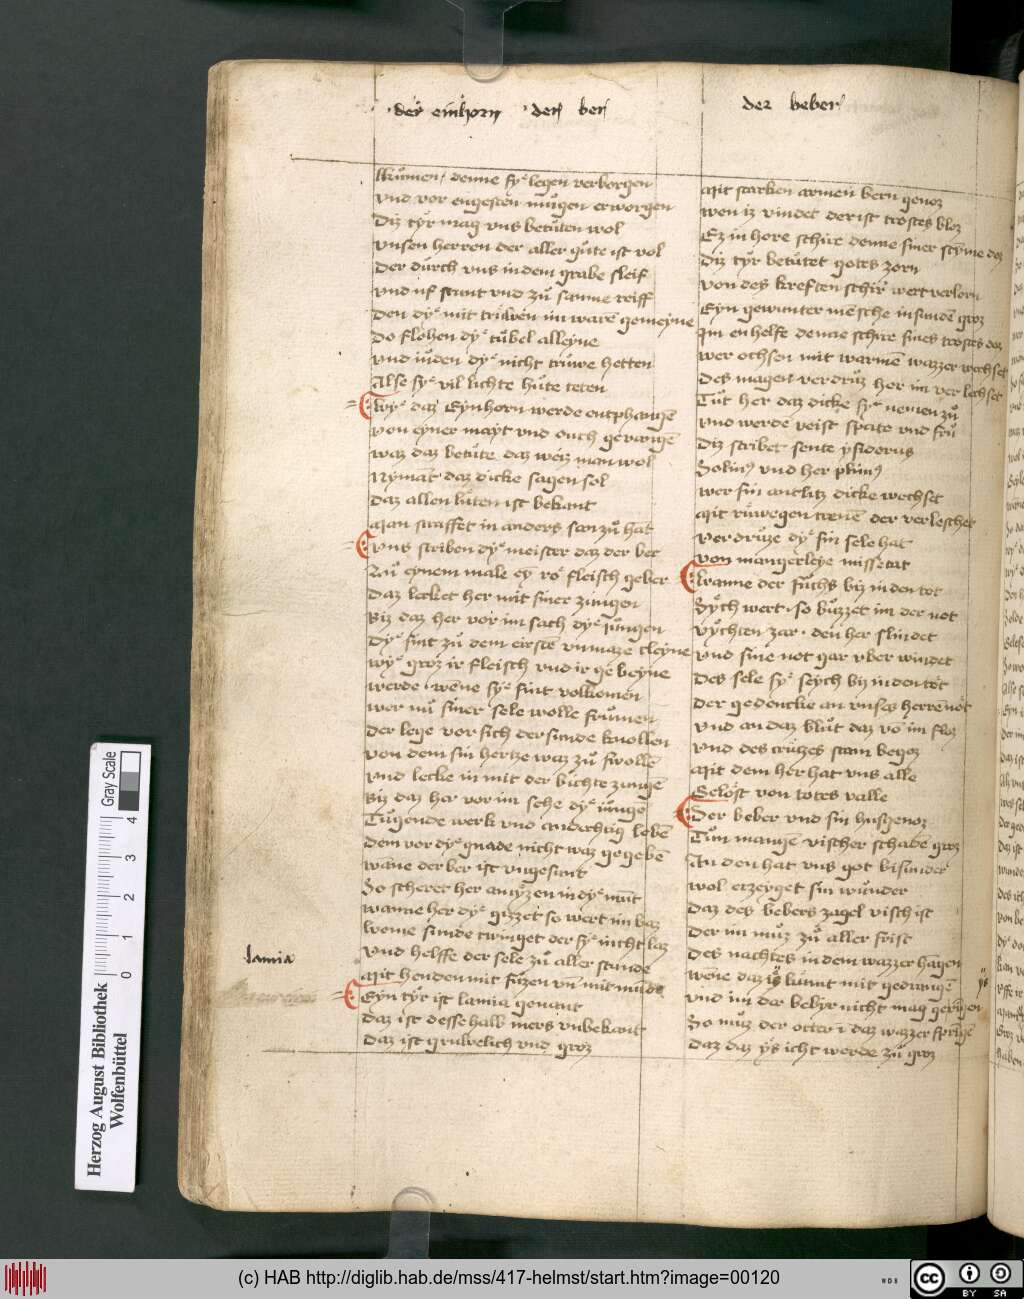 der einhorn der ber
der beber
kumen, denne sy legen verborgen
vnd vor engesten mugen erworgen
Diz tyr mag vns betuten wol
vnsen herren der aller gute ist vol
Der durch vns in dem grabe sleif
vnd uf stunt vnd zu samne reiff
Den dy mit truwen im ware gemeyne
Do flohen dy tubel alleyne
vnd iuden dy nicht truwe hetten
Alse sy vil lichte hute teten
wy daz Eynhorn werde entphangē
von eyner mayt vnd ouch gevangē
waz daz betute daz weiz man wol
Nymāt daz dicke sagen sol
daz allen luten ist bekant
Man straffet in anders san zu hat
vns scriben dy meister daz der ber
Zu eynem male ey ro fleisch geber
Daz lecket her mit siner zungen
Biz daz her vor im sach dy iungen
Dy sint zu dem eirstē vnmaze cleyne
wy groz ir fleisch vnd ir gebeyne
werde wēne sy sint volkomen
wer nu siner sele wolle frumen
der lege vor sich der sunde knollen
von dem sin hertze waz zu swollē
vnd lecke in mit der bichte zungē
Biz daz her vor im sehe dy iungē
Tugende werk vnd andechtig lebē
dem vor dy gnade nicht waz gegebē
wāne der ber ist vngesunt
So scheret her amyzen in dy mūt
wanne her dy gizzet so wert im baz
weme sunde twinget der sy nicht laz
vnd helffe der sele zu aller stunde
Mit henden mit fuzen vn mit munde
lamia
Eyn tyr ist lamia genant
daz ist desse halb mers vnbekant
Daz ist gruwelich vnd groz
Mit starken armen bern genoz
wen iz vindet der ist trostes bloz
Ez in hore schire denne siner stȳme doz
Diz tyr betutet gotes zorn
von des kreften schir wert verlorn
Eyn gewunter mēsche in sundē groz
Im enhelfe denne schire sines trostes doz
wer ochsen mit warmē wazzer wechset
Des magen verdruz her im verlechset
Tut her daz dicke sy nemen zu
vnd werde veist spate vnd fru
Diz scribet sente ysiderus
Solinus vnd her plinius
wer sin antlitz dicke wechset
Mit ruwegen trenē der verleschet
verdruze dy sin sele hat
von mangerleye missetat
wanne der fuchs biz in den tot
Sych wert so buzzet im der not
vychten zar den her slindet
vnd sine not gar vber windet
Des sele sy seych biz in den tot
der gedencke an vnses herrē not
vnd an daz blut daz vō im floz
vnd des cruzes stam begoz
Mit dem her hat vns alle
Gelost von totes valle
Der beber vnd sin husgenoz
Tun mangē vischer schadē groz
An den hat vns got bisunder
wol erzeyget sin wunder
daz des bebers zagel visch ist
Der im muz zu aller frist
Des nachtes in dem wazzer hangen
wēne daz ys kumt mit gedrangē
ys
vnd im der bebyr nicht mag geringen
So muz der otter i daz wazzer springē
daz daz ys icht werde zu groz
Herzog August Bibliothek
Wolfenbüttel
0 1 2 3 4
Gray Scale
(c) HAB http://diglib.hab.de/mss/417-helmst/start.htm?image=00120
WDB
cc
BY SA